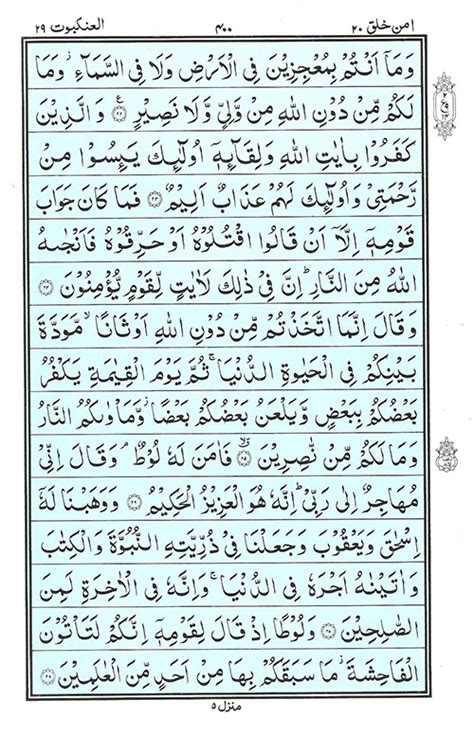 امن خلق ٢٠ ۴۰۰ العنكبوت ٢٩
وَمَاۤ اَنْتُمْ بِمُعْجِزِيْنَ فِي الْاَرْضِ وَلَا فِي السَّمَآءِ ۫ وَمَا
لَكُمْ مِّنْ دُوْنِ اللهِ مِنْ وَّلِيٍّ وَّلَا نَصِيْرٍ ۝۲۲ وَالَّذِيْنَ
كَفَرُوْا بِاٰيٰتِ اللهِ وَلِقَآئِهٖۤ اُولٰٓئِكَ يَئِسُوْا مِنْ
رَّحْمَتِيْ وَاُولٰٓئِكَ لَهُمْ عَذَابٌ اَلِيْمٌ ۝۲۳ فَمَا كَانَ جَوَابَ
قَوْمِهٖۤ اِلَّاۤ اَنْ قَالُوا اقْتُلُوْهُ اَوْ حَرِّقُوْهُ فَاَنْجٰىهُ
اللهُ مِنَ النَّارِ ؕ اِنَّ فِيْ ذٰلِكَ لَاٰيٰتٍ لِّقَوْمٍ يُّؤْمِنُوْنَ ۝۲۴
وَقَالَ اِنَّمَا اتَّخَذْتُمْ مِّنْ دُوْنِ اللهِ اَوْثَانًا ۙ مَّوَدَّةَ
بَيْنِكُمْ فِي الْحَيٰوةِ الدُّنْيَا ۚ ثُمَّ يَوْمَ الْقِيٰمَةِ يَكْفُرُ
بَعْضُكُمْ بِبَعْضٍ وَّيَلْعَنُ بَعْضُكُمْ بَعْضًا ۫ وَّمَاْوٰىكُمُ النَّارُ
وَمَا لَكُمْ مِّنْ نّٰصِرِيْنَ ۝۲۵ فَاٰمَنَ لَهٗ لُوْطٌ ۘ وَقَالَ اِنِّيْ
مُهَاجِرٌ اِلٰى رَبِّيْ ؕ اِنَّهٗ هُوَ الْعَزِيْزُ الْحَكِيْمُ ۝۲۶ وَوَهَبْنَا لَهٗۤ
اِسْحٰقَ وَيَعْقُوْبَ وَجَعَلْنَا فِيْ ذُرِّيَّتِهِ النُّبُوَّةَ وَالْكِتٰبَ
وَاٰتَيْنٰهُ اَجْرَهٗ فِي الدُّنْيَا ۚ وَاِنَّهٗ فِي الْاٰخِرَةِ لَمِنَ
الصّٰلِحِيْنَ ۝۲۷ وَلُوْطًا اِذْ قَالَ لِقَوْمِهٖۤ اِنَّكُمْ لَتَاْتُوْنَ
الْفَاحِشَةَ ۫ مَا سَبَقَكُمْ بِهَا مِنْ اَحَدٍ مِّنَ الْعٰلَمِيْنَ ۝۲۸
منزل ۵